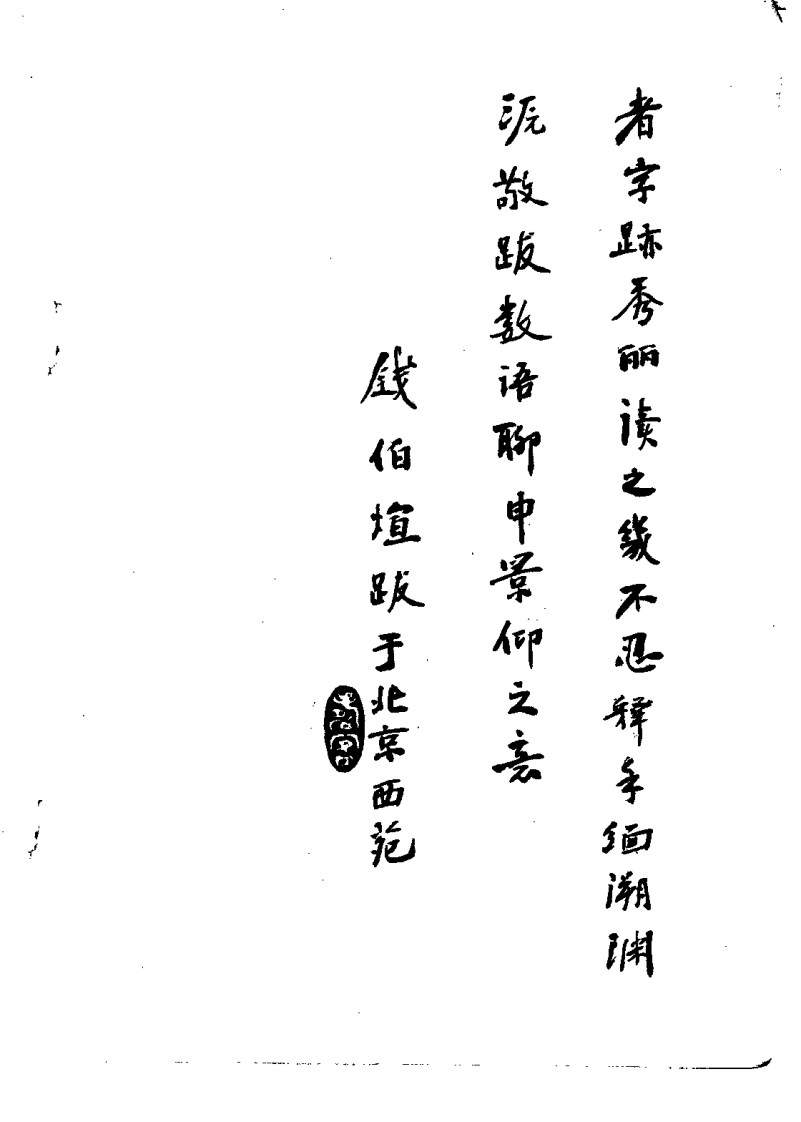 者字跡秀丽读之几不忍释手缅溯渊
源敬跋数语聊申景仰之意
钱伯煊跋于北京西苑